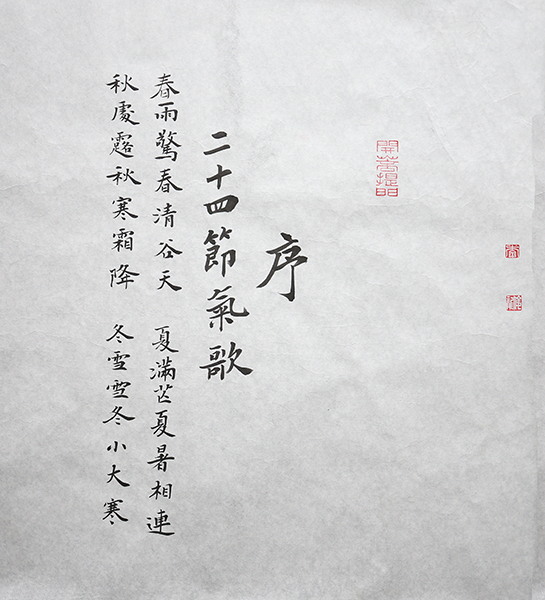 序
二十四節氣歌
春雨驚春清谷天　夏滿芒夏暑相連
秋處露秋寒霜降　冬雪雪冬小大寒